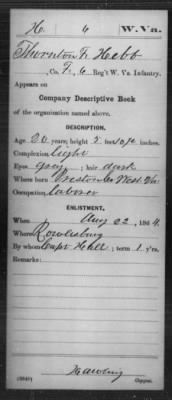 H 6 W. Va.
Thornton F. Hebb
, Co. F, 6 Reg't W. Va. Infantry.
Appears on
Company Descriptive Book
of the organization named above.
DESCRIPTION.
Age 20 years; height 5 feet 10 3/4 inches.
Complexion light
Eyes gray; hair dark
Where born Preston Co West Va
Occupation laborer
ENLISTMENT.
When Aug 22, 1864.
Where Rowlesburg
By whom Capt Hall; term 1 y'rs.
Remarks:
Copyist.